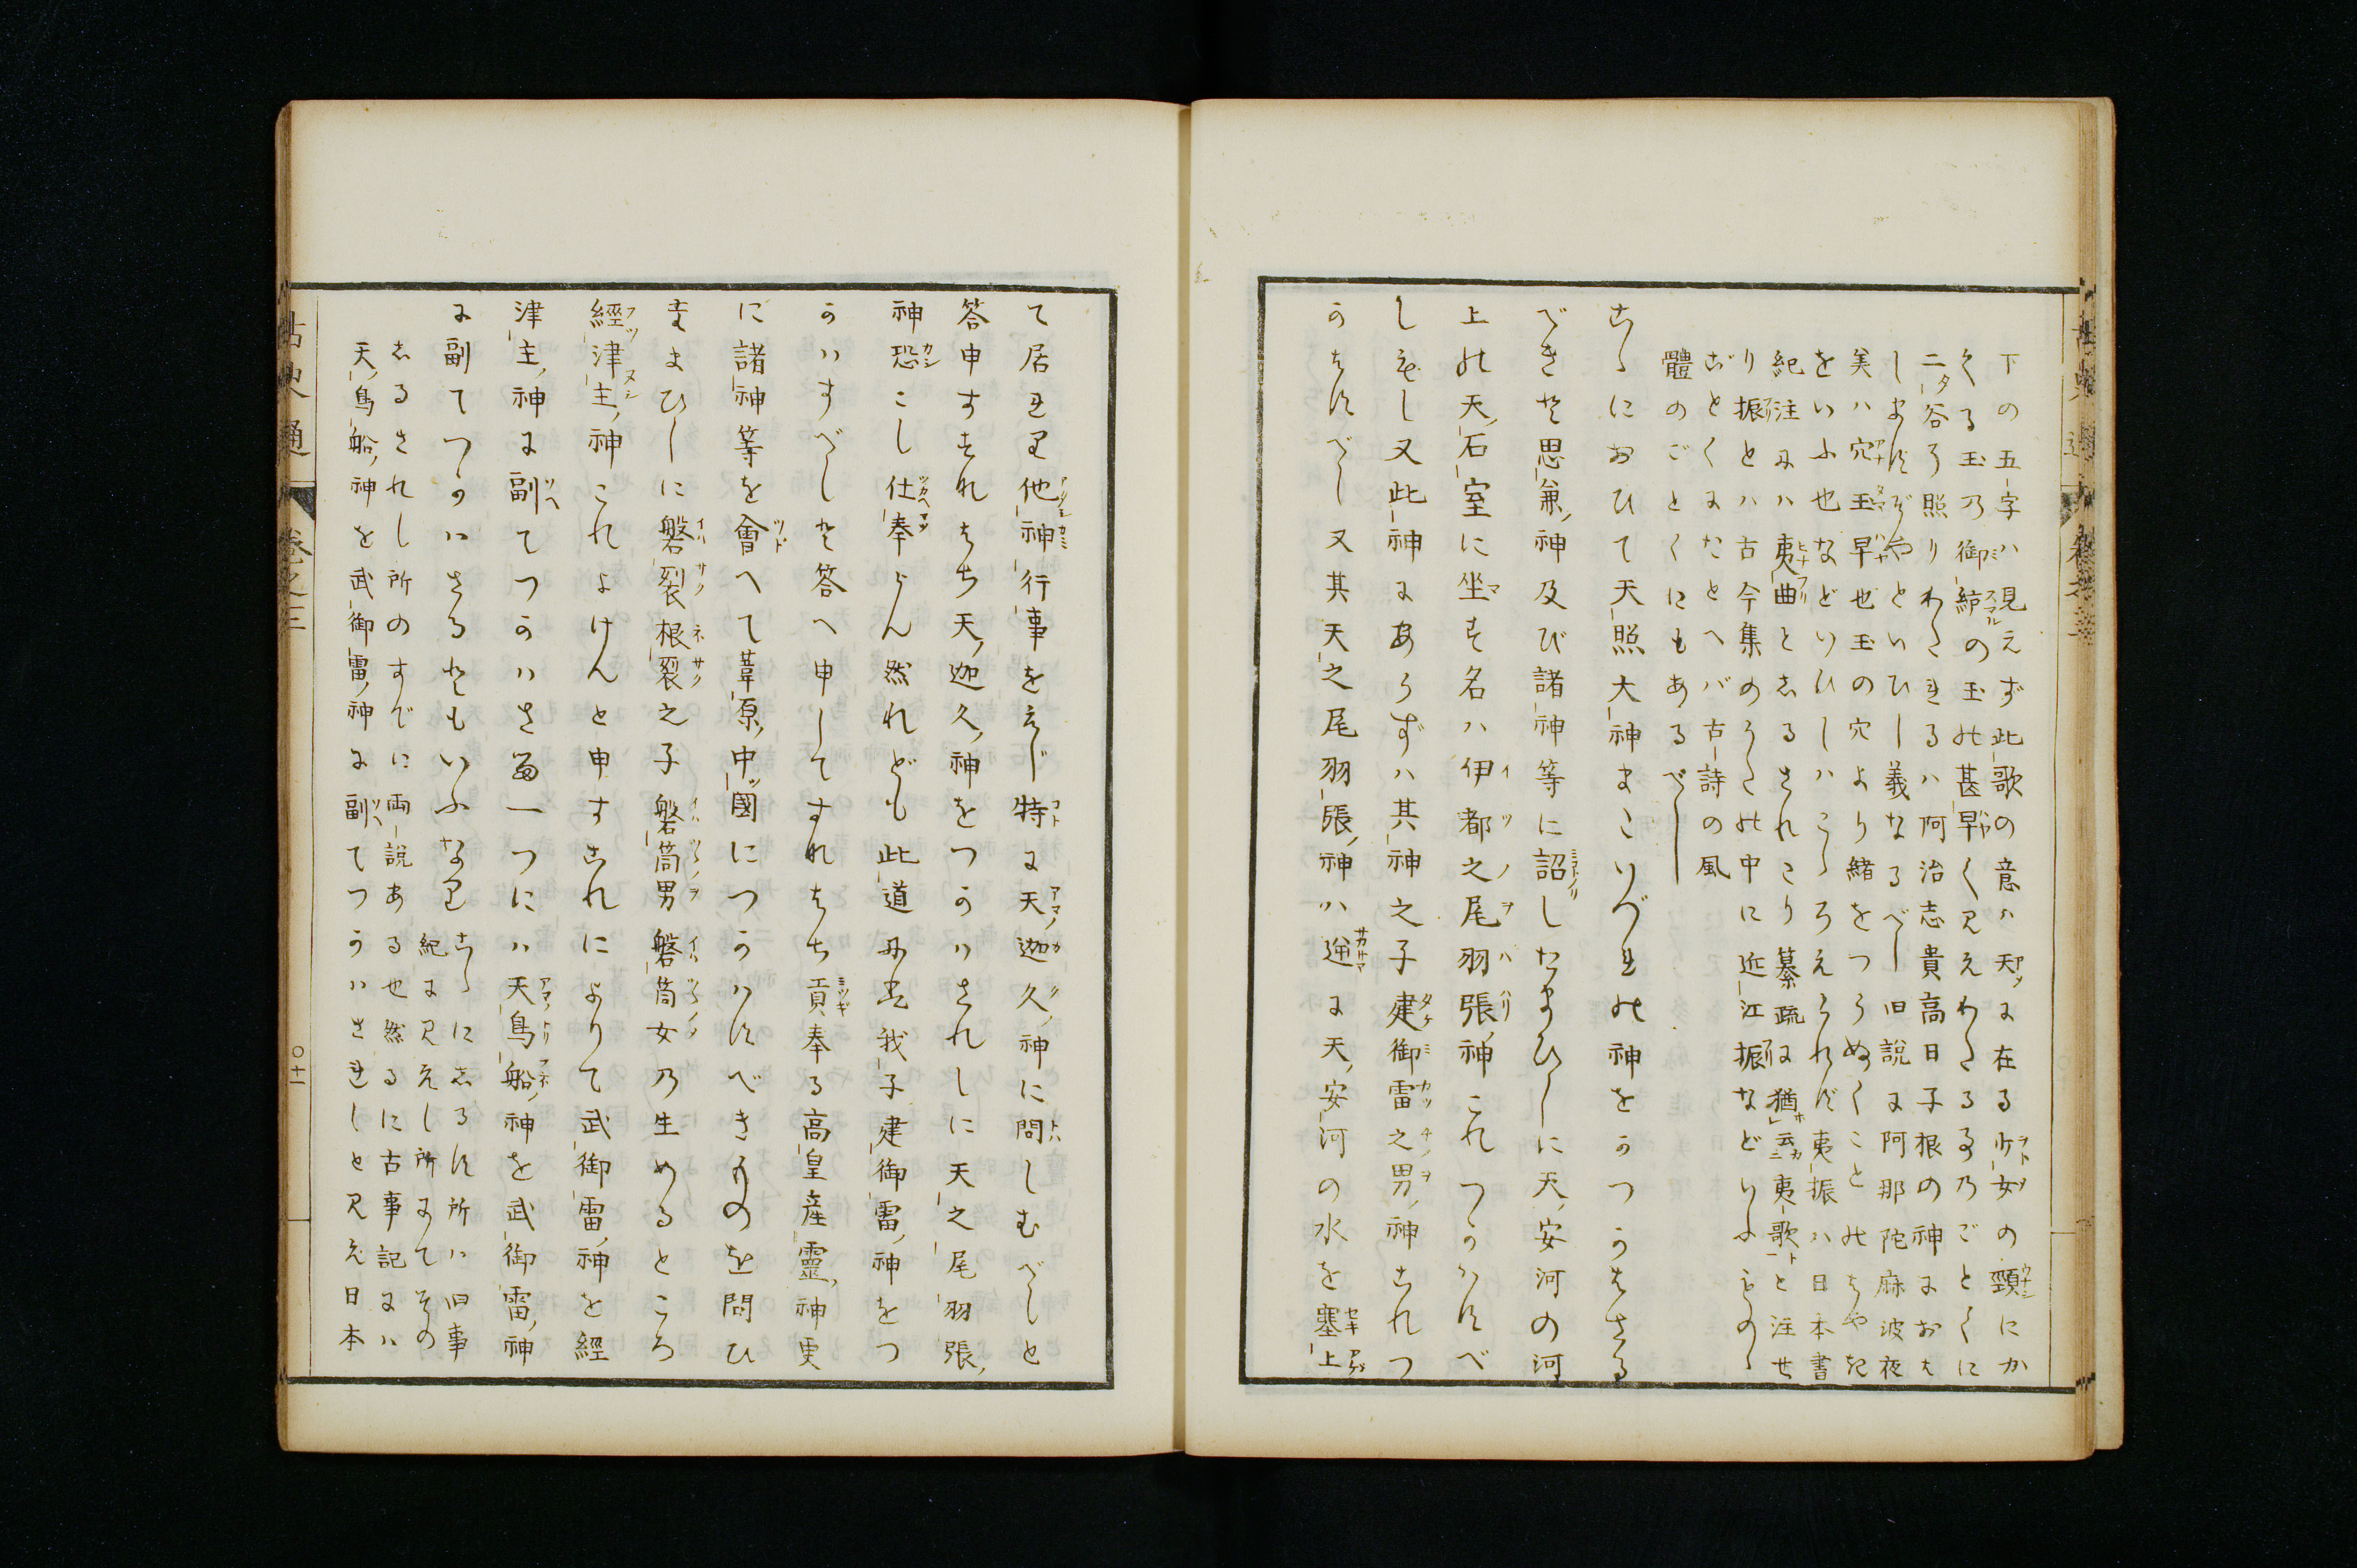 下の五字ハ見えず此歌の意ハ天に在る少女の頸にか
くる玉乃御統の玉の甚早く見えわたる事乃ごとくに
二谷に照りわたれるハ阿治志貴高日子根の神におは
しますぞやといひし義なるべし旧説に阿那陀麻波夜
美ハ穴玉早也玉の穴より緒をつらぬくことのはやき
をいふ也などいひしハこゝろえられず夷振ハ日本書
紀注にハ夷曲としるされたり纂疏に猶云夷歌と注せ
り振とハ古今集のうたの中に近江振などいふものゝ
ごとくにたとへバ古詩の風
體のごとくにもあるべし
こゝにおひて天照大神またいづれの神をつかはさる
べきと思兼神及び諸神等に詔したまひしに天安河の河
上の天石室に坐す名ハ伊都之尾羽張神これつかハすべ
しもし又此神にあらずハ其神之子建御雷之男神これつ
かはすべし又其天之尾羽張神ハ逆に天安河の水を塞上
て居れり他神行事をえじ特に天迦久神に問しむべしと
答申すすなはち天迦久神をつかハされしに天之尾羽張
神恐こし仕奉らん然れども此道にハ我子建御雷神をつ
かハすべしと答へ申してすなはち貢奉る高皇産靈神更
に諸神等を會へて葦原中國につかハすべきものを問ひ
たまひしに磐裂根裂之子磐筒男磐筒女乃生めるところ
經津主神これよけんと申すこれによりて武御雷神を經
津主神に副てつかハさる一つにハ天鳥船神を武御雷神
に副てつかハさるともいふなり
こゝにしるす所ハ旧事
紀に見えし所にてその
しるされし所のすでに両説ある也然るに古事記にハ
天鳥船神を武御雷神に副てつかハされしと見え日本
古史通 卷之三
〇十一